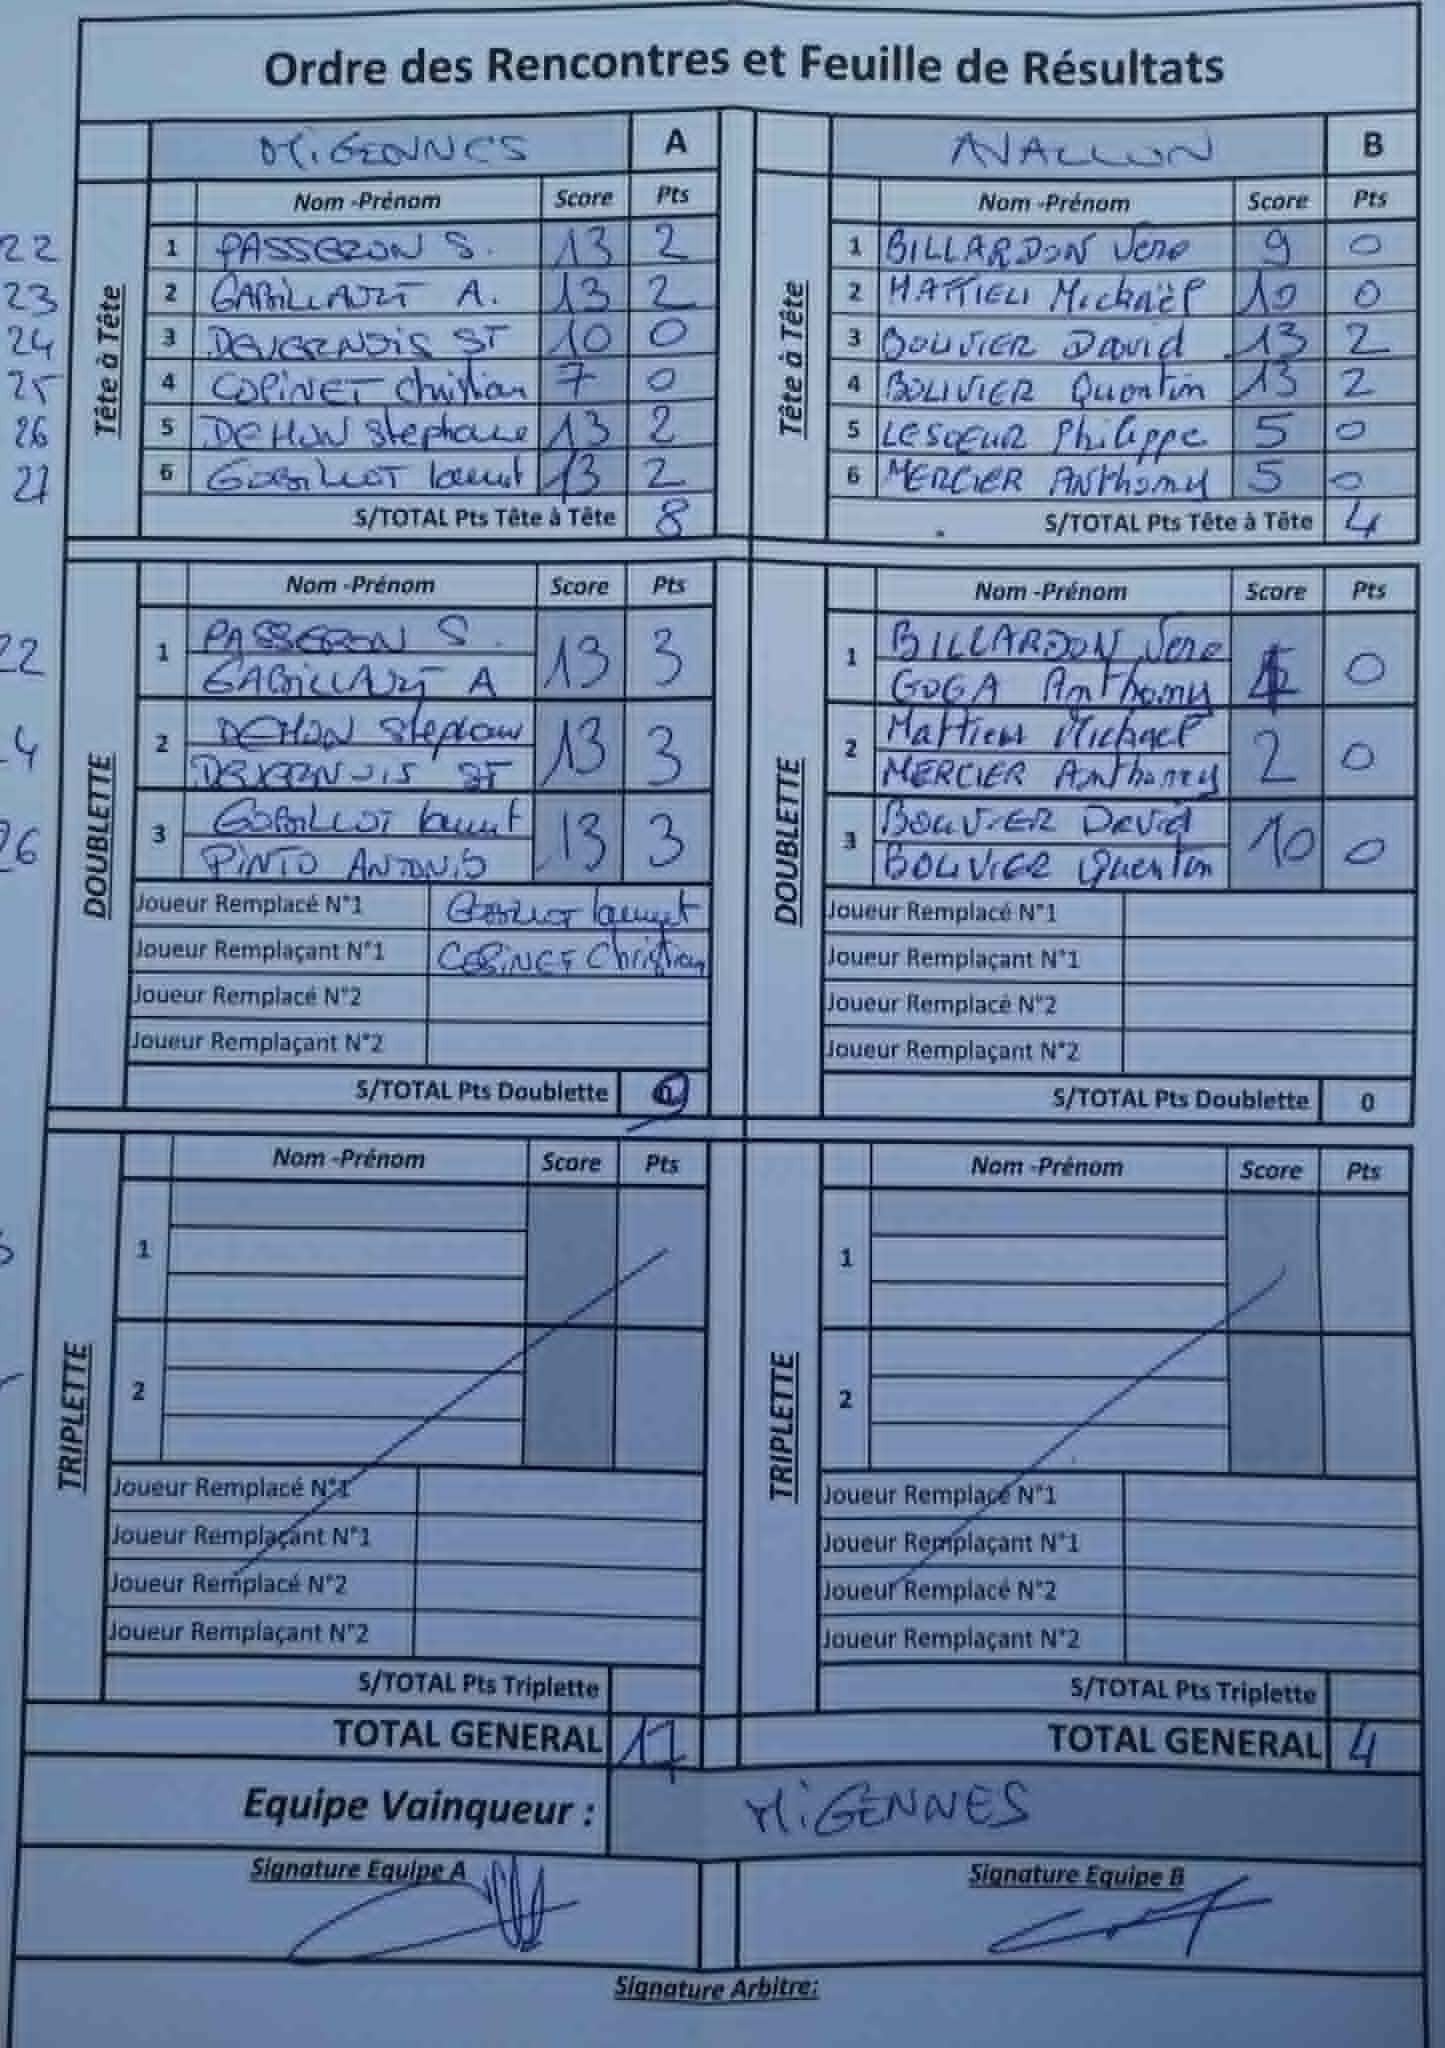 Ordre des Rencontres et Feuille de Résultats
MiGENNES A
AVALLON B
Tête à Tête
Nom -Prénom Score Pts
22 1 PASSERON S. 13 2
23 2 GABILLAULT A. 13 2
24 3 DEVERNOIS ST 10 0
25 4 COPINET Christian 7 0
26 5 DEHON Stephane 13 2
27 6 GOBILLOT laurent 13 2
S/TOTAL Pts Tête à Tête 8
Tête à Tête
Nom -Prénom Score Pts
1 BILLARDON Vero 9 0
2 MATTIELI Mickaël 10 0
3 BOUVIER David 13 2
4 BOUVIER Quentin 13 2
5 LESOEUR Philippe 5 0
6 MERCIER Anthony 5 0
S/TOTAL Pts Tête à Tête 4
DOUBLETTE
Nom -Prénom Score Pts
22 1 PASSERON S. 13 3
GABILLAULT A
4 2 DEHON Stephane 13 3
DEVERNOIS ST
26 3 GOBILLOT laurent 13 3
PINTO ANTONIO
Joueur Remplacé N°1 GOBILLOT laurent
Joueur Remplaçant N°1 COPINET Christian
Joueur Remplacé N°2
Joueur Remplaçant N°2
S/TOTAL Pts Doublette 9
DOUBLETTE
Nom -Prénom Score Pts
1 BILLARDON Vero 0
GOGA Anthony
2 Mattieli Michael 2 0
MERCIER Anthony
3 BOUVIER David 10 0
BOUVIER Quentin
Joueur Remplacé N°1
Joueur Remplaçant N°1
Joueur Remplacé N°2
Joueur Remplaçant N°2
S/TOTAL Pts Doublette 0
TRIPLETTE
Nom -Prénom Score Pts
1
2
Joueur Remplacé N°1
Joueur Remplaçant N°1
Joueur Remplacé N°2
Joueur Remplaçant N°2
S/TOTAL Pts Triplette
TOTAL GENERAL 17
TRIPLETTE
Nom -Prénom Score Pts
1
2
Joueur Remplacé N°1
Joueur Remplaçant N°1
Joueur Remplacé N°2
Joueur Remplaçant N°2
S/TOTAL Pts Triplette
TOTAL GENERAL 4
Equipe Vainqueur : MiGENNES
Signature Equipe A
Signature Equipe B
Signature Arbitre: